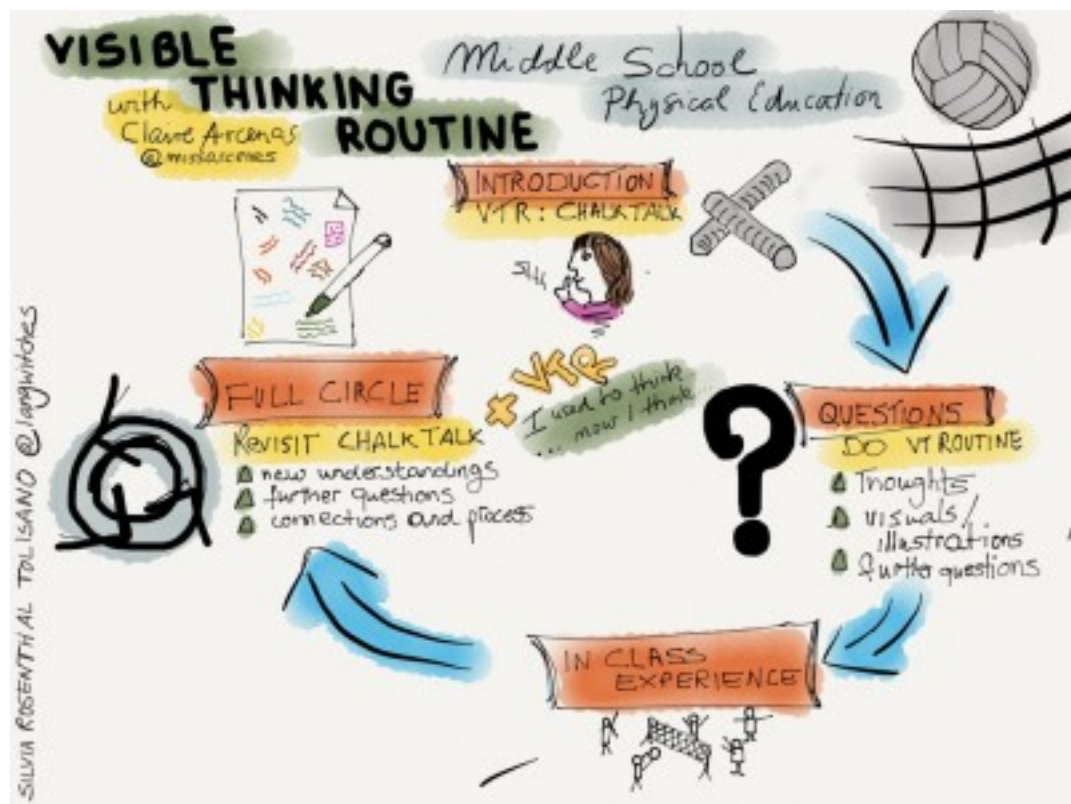 VISIBLE
THINKING
ROUTINE
with
Claire Arcenas
Middle School
Physical Education
INTRODUCTION
VTR: CHALKTALK
Shh
QUESTIONS
DO VT ROUTINE
Thoughts
visuals/
illustrations
further questions
IN CLASS
EXPERIENCE
FULL CIRCLE
REVISIT CHALKTALK
new understandings
further questions
connections and process
+ VTR
I used to think
... now I think...
?
SILVIA ROSENTHAL TOLISANO @langwitches